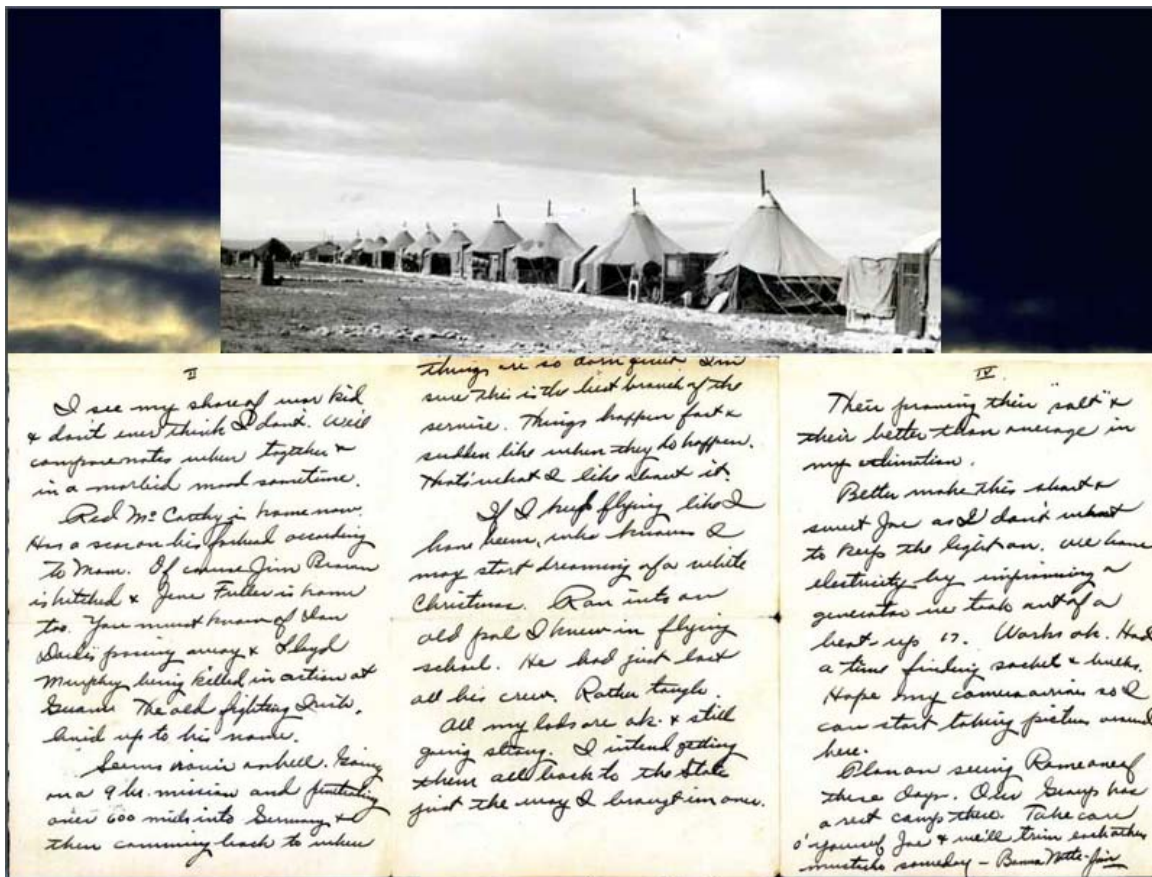 II
I see my share of war kid
& don't ever think I don't. We'll
compare notes when together &
in a morbid mood sometime.
Red McCarthy is home now.
Has a scar on his forhead according
to Mom. Of course Jim Brown
is hitched & Gene Fuller is home
too. You must know of Dan
passing away & Lloyd
Murphey being killed in action at
Guam. The old fighting Irish,
lived up to his name.
Seems ironic as hell. Going
on a 9 hr. mission and penetrating
over 600 miles into Germany &
then comming back to where
things are so darn quiet I'm
sure this is the best branch of the
service. Things happen fast &
sudden like when they do happen.
That's what I like about it.
If I keep flying like I
have been, who knows I
may start dreaming of a white
Christmas. Ran into an
old pal I knew in flying
school. He had just lost
all his crew. Rather tough.
All my lads are ok. & still
going strong. I intend getting
them all back to the States
just the way I brought 'em over.
IV
Their proving their "salt" &
their better than average in
my estimation.
Better make this short &
sweet Joe as I don't want
to keep the light on. We have
electricity by improvising a
generator we took out of a
beat-up 17. Works ok. Had
a time finding socket & bulbs.
Hope my camera arrives so I
can start taking pictures around
here.
Plan on seeing Rome one of
these days. Our Group has
a rest camp there. Take care
o' yourself Joe & we'll trim each others
mustache someday – Bouna Notte - Jim